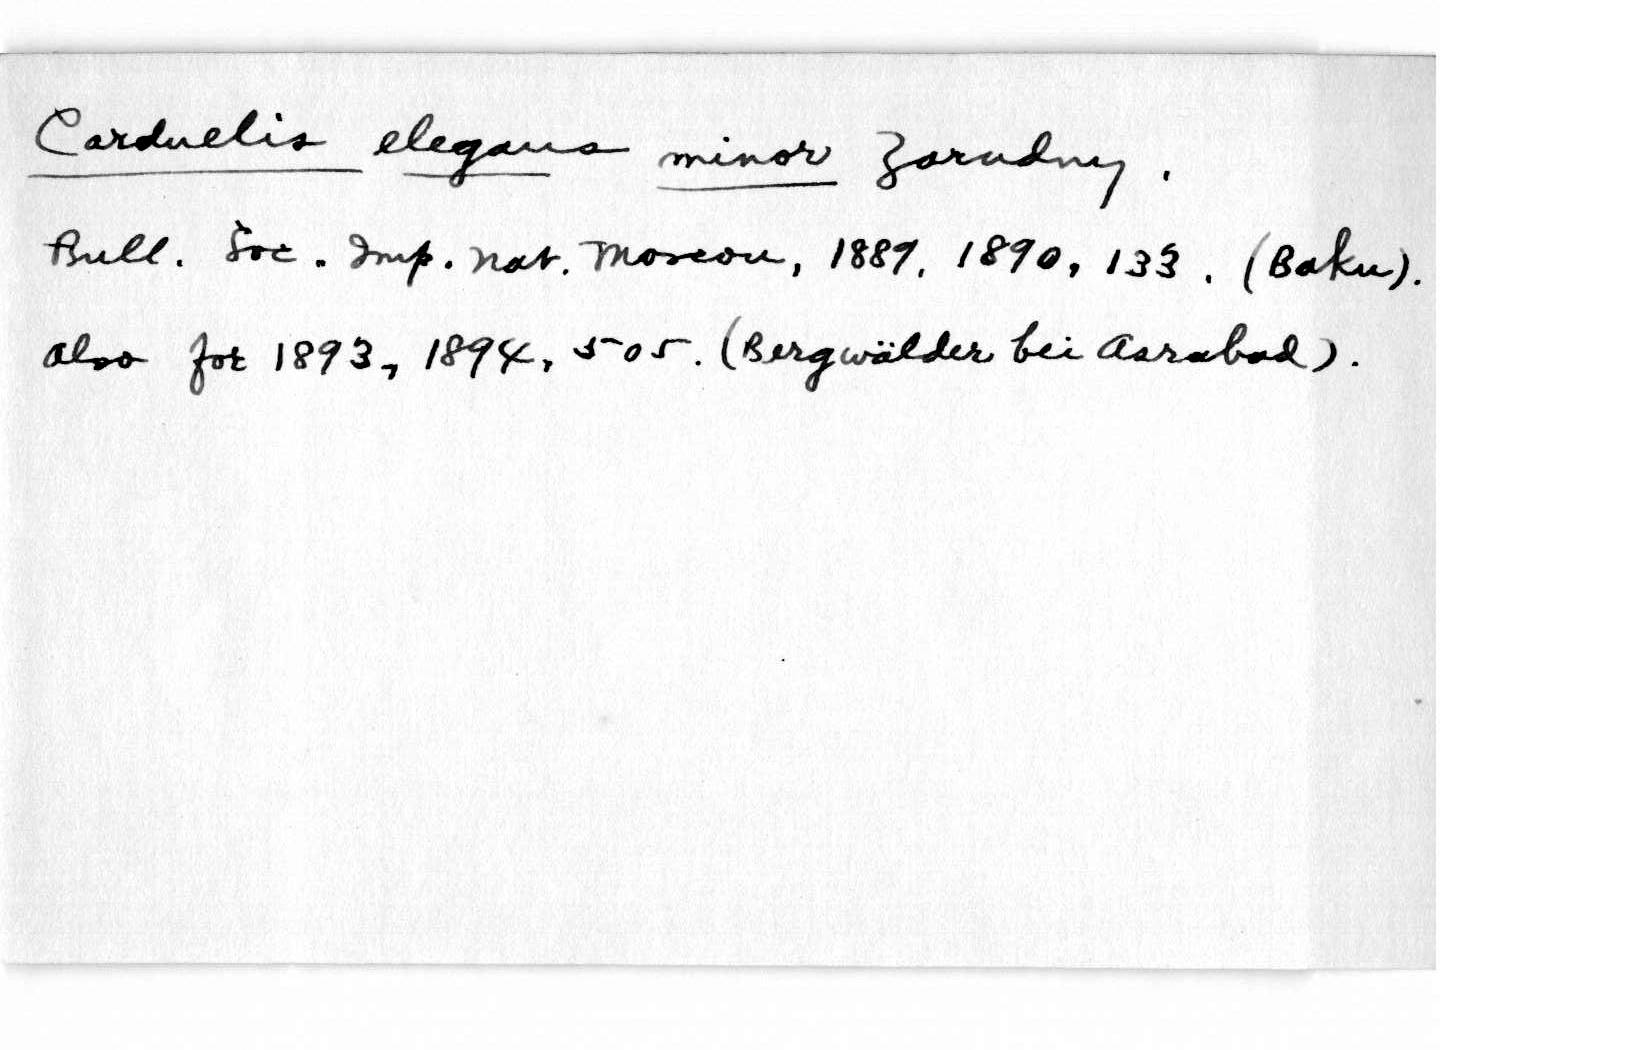 Carduelis elegans minor Zarudny.
Bull. Soc. Imp. Nat. Moscou, 1889, 1890, 133. (Baku).
Also for 1893, 1894, 505. (Bergwälder bei Asrabad).